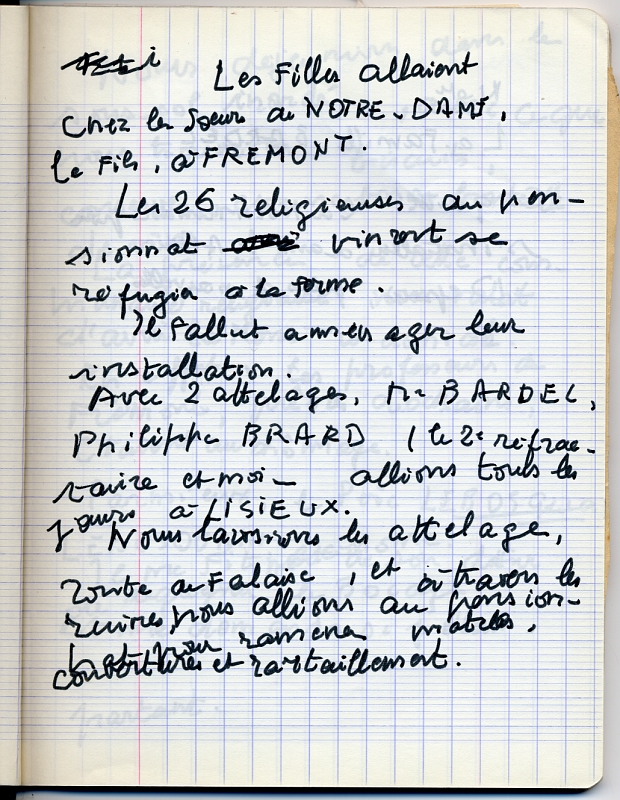 Les Filles allaient
Chez les Soeurs de NOTRE-DAME,
le Fils, à FREMONT.
Les 26 religieuses du pen-
sionnat vinrent se
réfugier à la ferme.
Il fallut aménager leur
installation.
Avec 2 attelages, Mr BARDEL,
Philippe BRARD (le 2e réfrac-
taire et moi - allions tous les
jours à LISIEUX.
Nous laissions les attelages,
route de Falaise, et à travers les
ruines, nous allions au pension-
nat pour ramener matelas,
couvertures et ravitaillement.